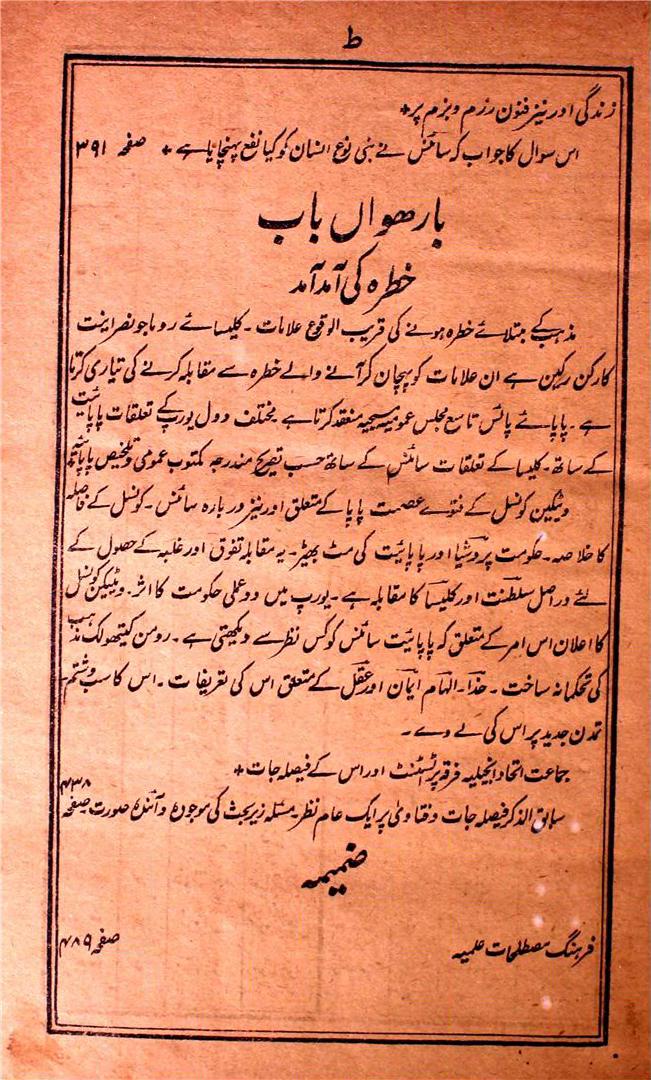 ط
زندگی اور نیز فنون رزم و بزم پر+
اس سوال کا جواب کہ سائنس نے بنی نوع انسان کو کیا نفع پہنچایا ہے + صفحہ ۳۹۱
بارھواں باب
خطرہ کی آمد آمد
مذہب کے مبتلائے خطرہ ہونے کی قریب الوقوع علامات۔ کلیسائے روما جو نصرانیت
کا رکن رکین ہے ان علامات کو پہچان کر آنے والے خطرہ سے مقابلہ کرنے کی تیاری کرتا
ہے۔ پاپائے پائس تاسع مجلس عمومیہ مسیحیہ منعقد کرتا ہے مختلف دول یورپ کے تعلقات پاپائیت
کے ساتھ۔ کلیسا کے تعلقات سائنس کے ساتھ حسب تصریح مندرجہ مکتوب عمومی و تلخیص پاپائیہ
ویٹیکن کونسل کے فتوے عصمت پاپا کے متعلق اور نیز در بارہ سائنس۔ کونسل کے فیصلہ
کا خلاصہ۔ حکومت پروشیا اور پاپائیت کی مٹ بھیڑ۔ یہ مقابلہ تفوق اور غلبہ کے حصول کے
لئے دراصل سلطنت اور کلیسا کا مقابلہ ہے۔ یورپ میں دو عملی حکومت کا اثر۔ ویٹیکن کونسل
کا اعلان اس امر کے متعلق کہ پاپائیت سائنس کو کس نظر سے دیکھتی ہے۔ رومن کیتھولک مذہب
کی تحکمانہ ساخت ۔ خدا۔ الہام ایمان اور عقل کے متعلق اس کی تعریفات ۔ اس کا سب و شتم۔
تمدن جدید پر اس کی لے دے۔
جماعت اتحاد انجیلیہ فرقہ پراٹسٹنٹ اور اس کے فیصلہ جات +
سابق الذکر فیصلہ جات و فتاویٰ پر ایک عام نظر۔ مسئلہ زیر بحث کی موجودہ و آئندہ صورت۔ صفحہ ۴۳۸
ضمیمہ
فرہنگ مصطلحات علمیہ صفحہ ۴۸۹